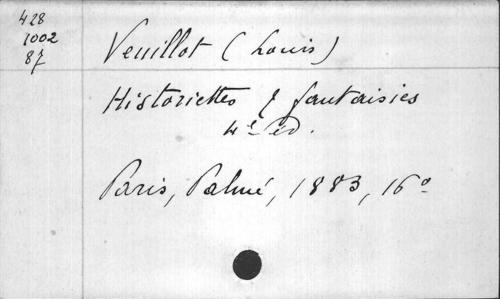 428
1002
87
Veuillot (Louis)
Historiettes & fantaisies
4e éd.
Paris, Palmé, 1883, 16º